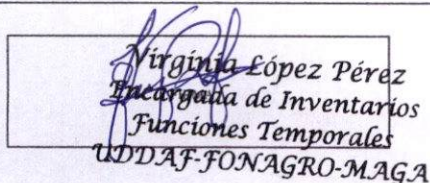 Virginia López Pérez
Encargada de Inventarios
Funciones Temporales
UDDAF-FONAGRO-MAGA